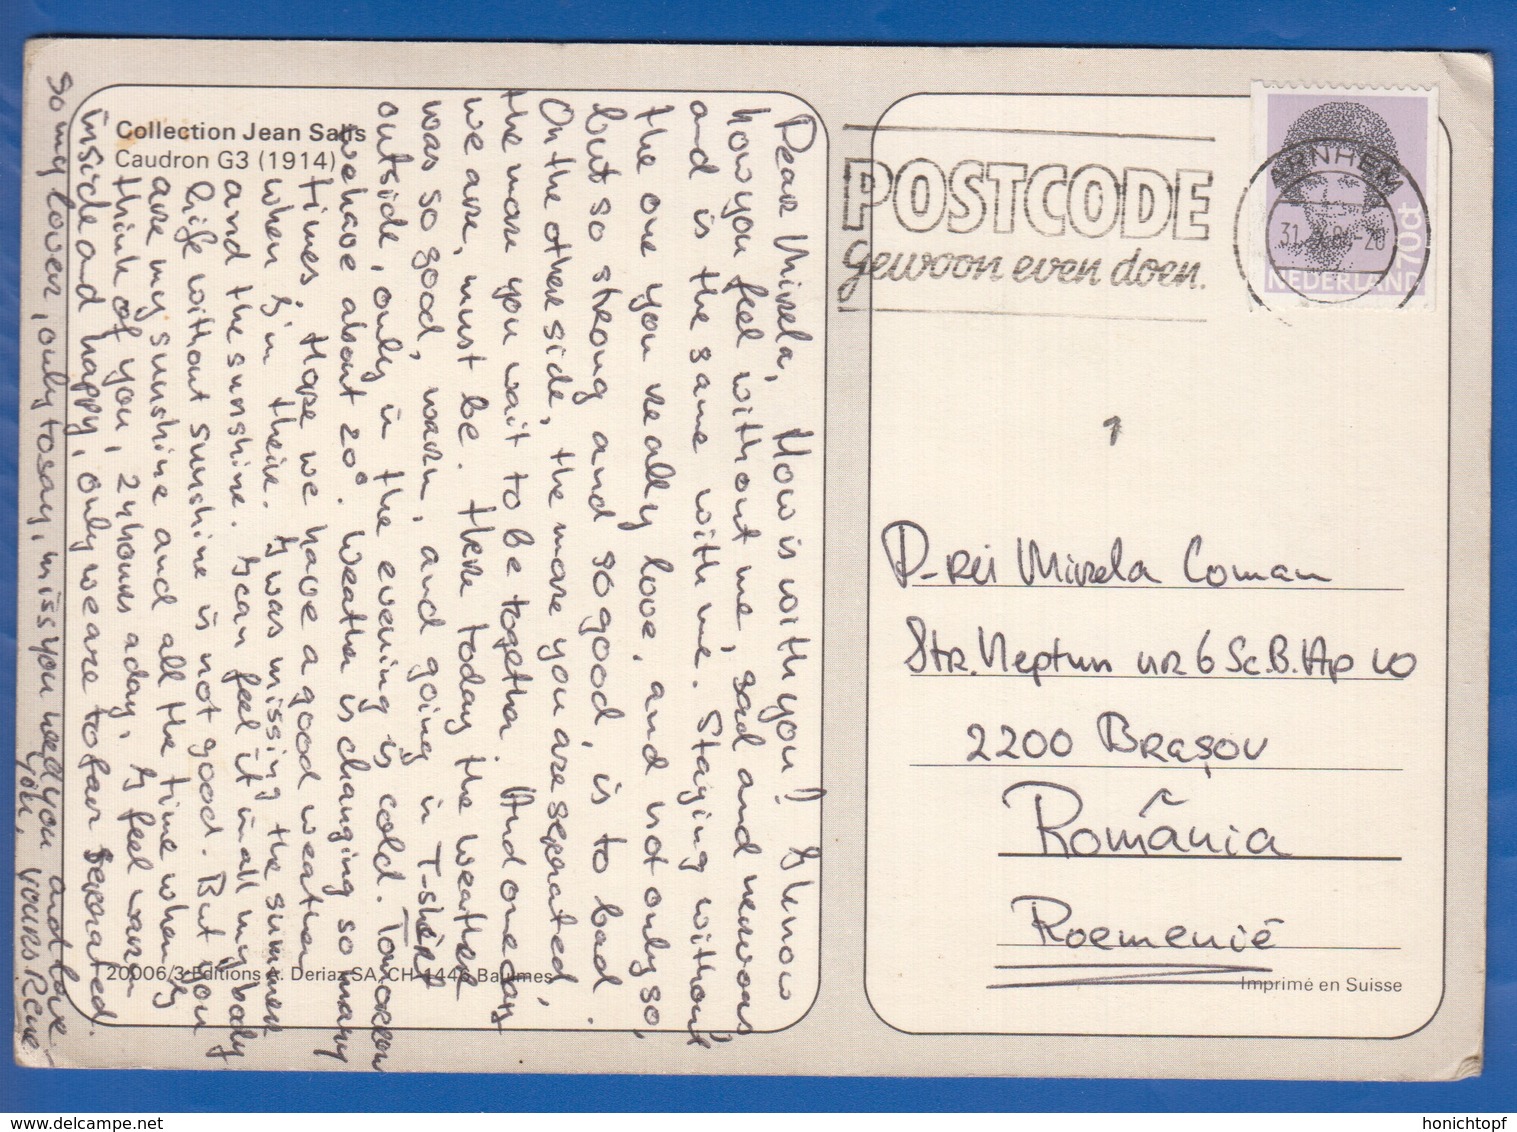 Collection Jean Salis
Caudron G3 (1914)
Dear Mirela, How is with you? I know
how you feel without me, sad and nervous
and is the same with me. Staying without
the one you really love, and not only so,
but so strong and so good, is to bad.
On the other side, the more you are separated,
the more you wait to be together. And one day
we are, must be. Here today the weather
was so good, warm, and going in T-shirt
outside, only in the evening is cold. Tomorrow
we have about 20°. Weather is changing so many
times. Hope we have a good weather
when I'm there. I was missing the summer
and the sunshine. I can feel it in all my body
life without sunshine is not good. But you
are my sunshine and all the time when I
think of you, 24 hours a day, I feel warm
inside and happy, only we are to far separated.
So my lover, only to say, miss you need you and love
you. Yours Rene
20006/3 Editions Deriaz SA, CH-1446 Baulmes
POSTCODE
gewoon even doen.
ARNHEM
31
NEDERLAND 70ct
1
D-rei Mirela Coman
Str. Neptun nr 6 Sc. B. Ap 10
2200 Brașov
România
Roemenië
Imprimé en Suisse
honichtopf